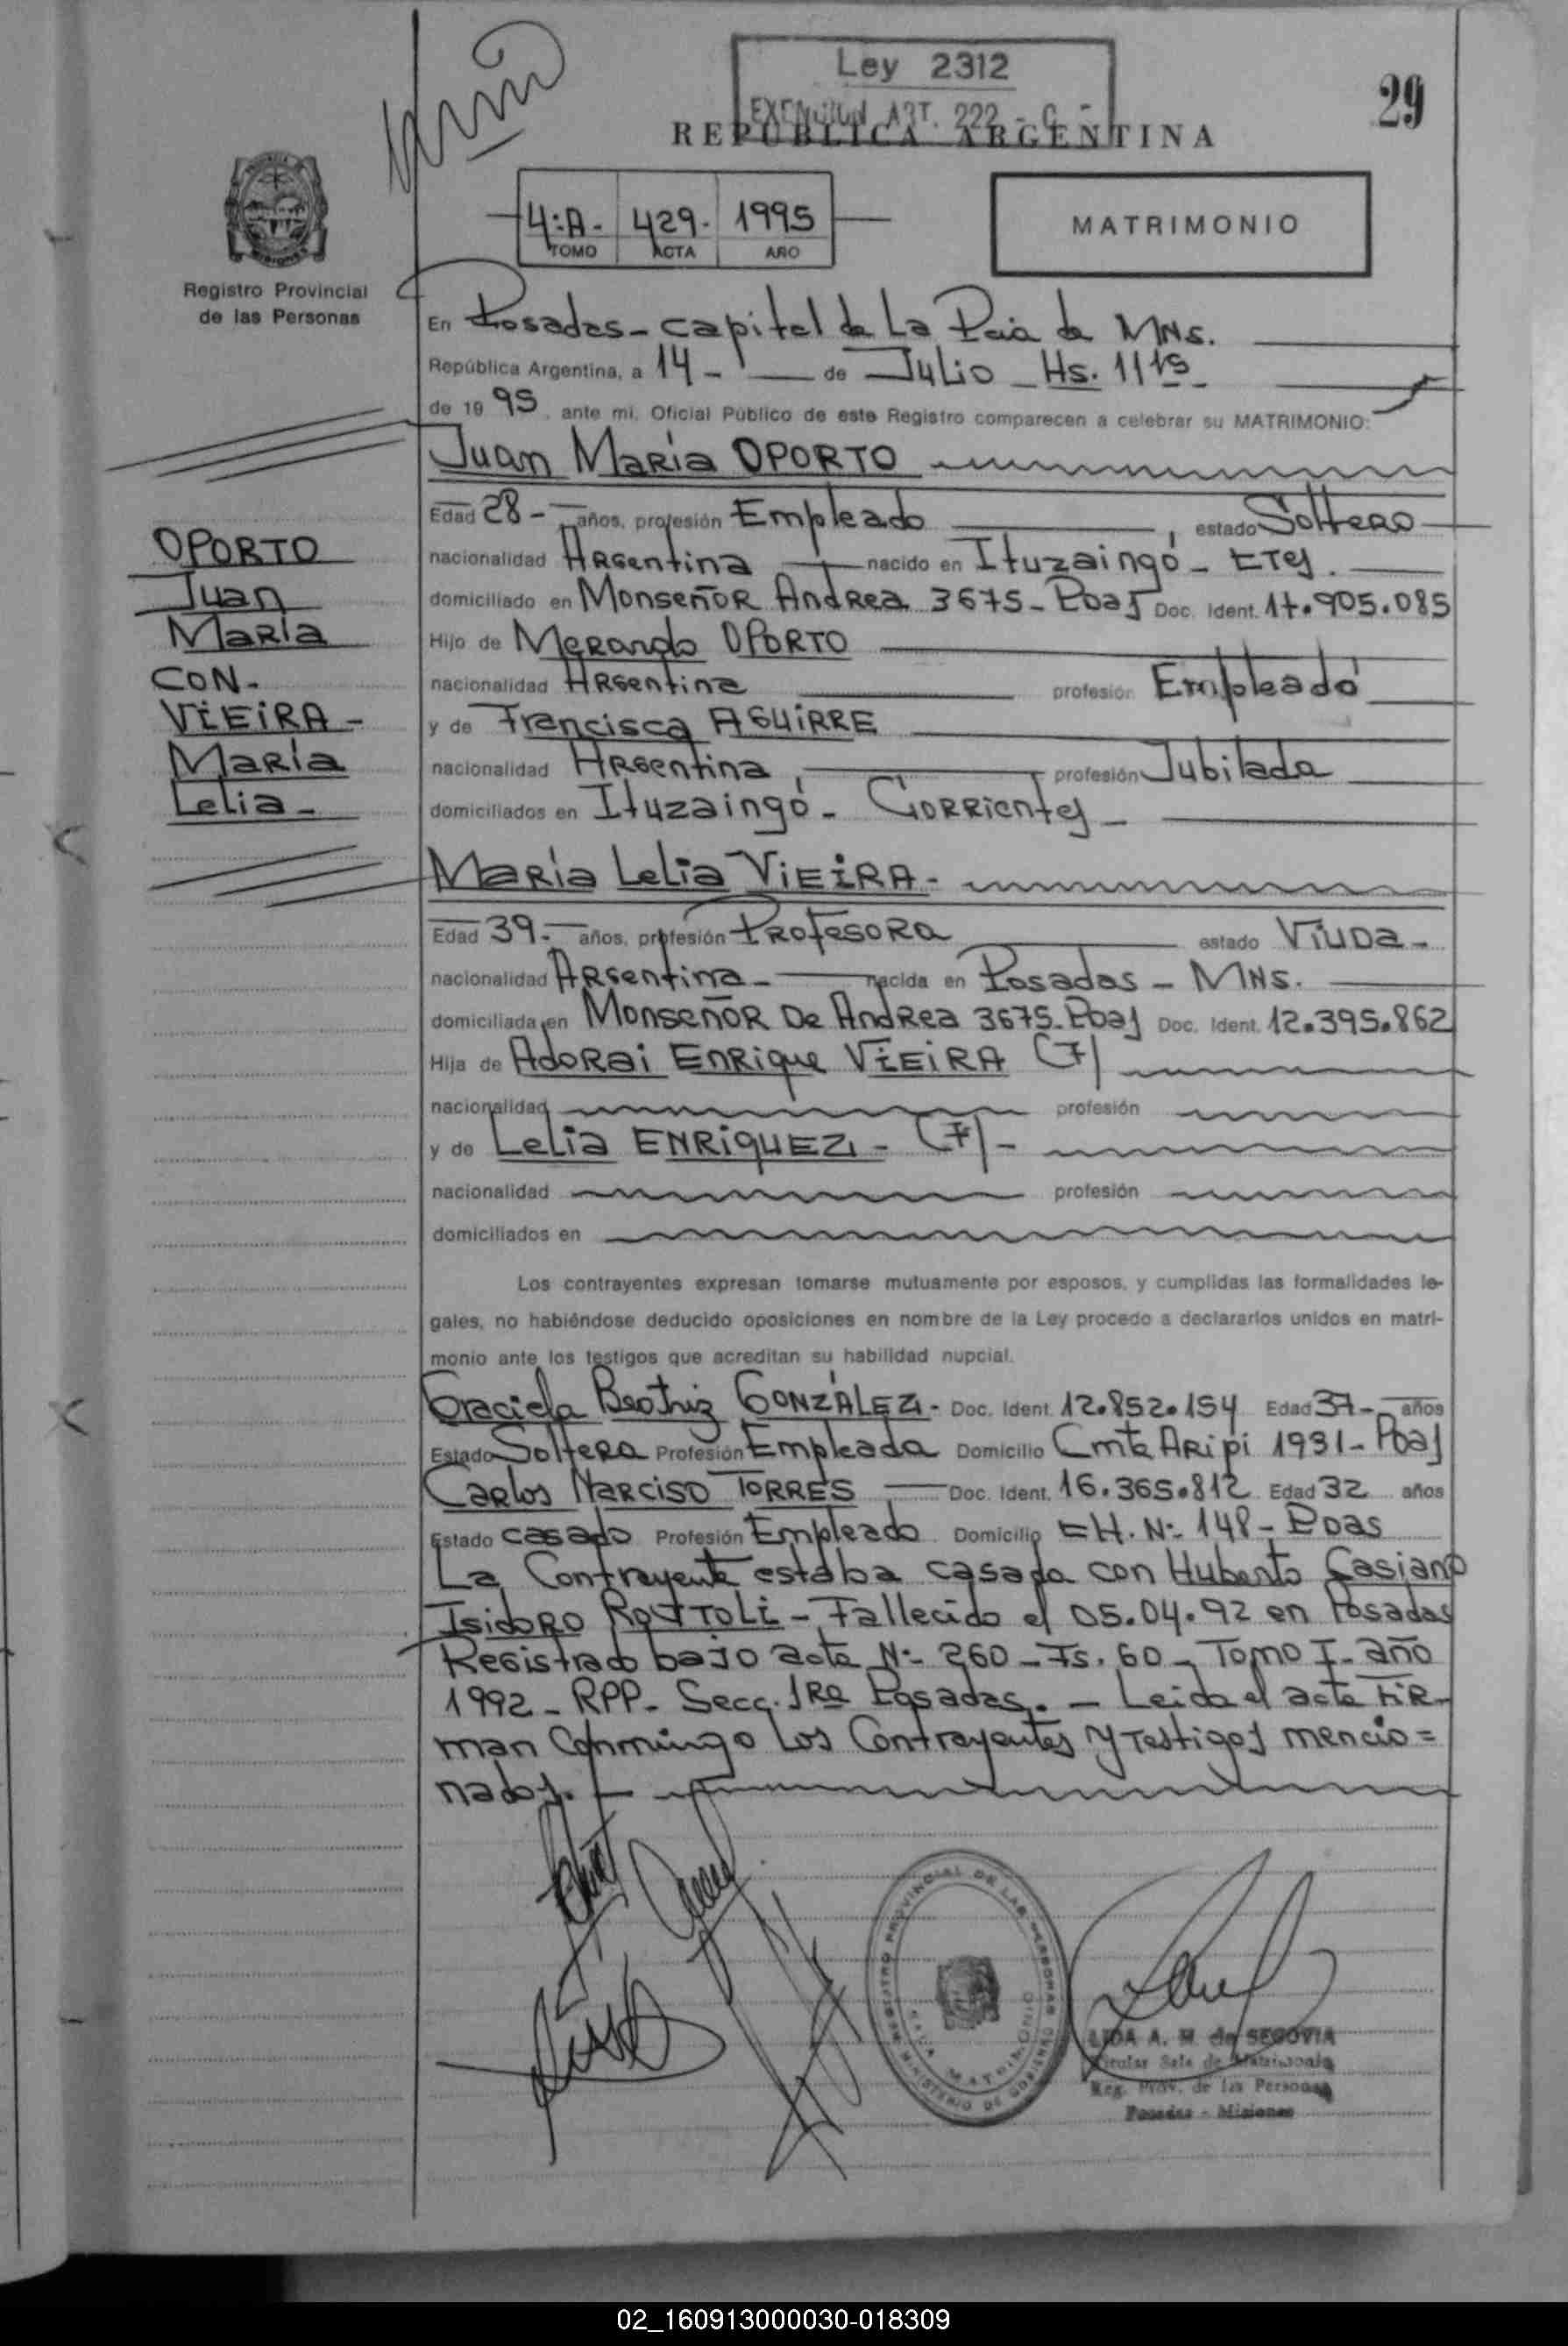 Ley 2312
EXENCION ART. 222 - C -
29
REPUBLICA ARGENTINA
4:A- 429- 1995
TOMO ACTA AÑO
MATRIMONIO
Registro Provincial
de las Personas
En Posadas - capital de La Pcia de MNS.
República Argentina, a 14 - de Julio - Hs. 11 15 -
de 19 95, ante mi, Oficial Público de este Registro comparecen a celebrar su MATRIMONIO:
Juan María OPORTO
Edad 28 - años, profesión Empleado, estado Soltero
nacionalidad Argentina nacido en Ituzaingó - Ctes.
domiciliado en Monseñor Andrea 3675 - Pdas Doc. Ident. 17.905.085
Hijo de Merardo OPORTO
nacionalidad Argentina profesión Empleado
y de Francisca AGUIRRE
nacionalidad Argentina, profesión Jubilada
domiciliados en Ituzaingó - Corrientes -
OPORTO
Juan
María
CON -
VIEIRA -
María
Lelia -
María Lelia VIEIRA -
Edad 39 - años, profesión Profesora estado Viuda -
nacionalidad Argentina - nacida en Posadas - MNS.
domiciliada en Monseñor De Andrea 3675 - Pdas Doc. Ident. 12.395.862
Hija de Adorai Enrique VIEIRA (F)
nacionalidad profesión
y de Lelia ENRIQUEZ - (F) -
nacionalidad profesión
domiciliados en
Los contrayentes expresan tomarse mutuamente por esposos, y cumplidas las formalidades le-
gales, no habiéndose deducido oposiciones en nombre de la Ley procedo a declararlos unidos en matri-
monio ante los testigos que acreditan su habilidad nupcial.
Graciela Beatriz GONZÁLEZ - Doc. Ident. 12.852.154 Edad 37 - años
Estado Soltera Profesión Empleada Domicilio Cmte ARipi 1931 - Pdas
Carlos Narciso TORRES Doc. Ident. 16.365.812 Edad 32 años
Estado casado Profesión Empleado Domicilio CH. Nº 148 - Pdas
La Contrayente estaba casada con Huberto Casiano
Isidoro ROTTOLI - Fallecido el 05.04.92 en Posadas
Registrado bajo acta Nº 260 - Fs. 60 - Tomo I - año
1992 - RPP - Secc. 1Ra Posadas. - Leida el acta FIR-
man conmigo los Contrayentes y Testigos mencio=
nados. -
REGISTRO PROVINCIAL DE LAS PERSONAS
SALA MATRIMONIO
MINISTERIO DE GOBIERNO
LIDA A. M. de SEGOVIA
Titular Sala de Matrimonio
Reg. Prov. de las Personas
Posadas - Misiones
02_160913000030-018309